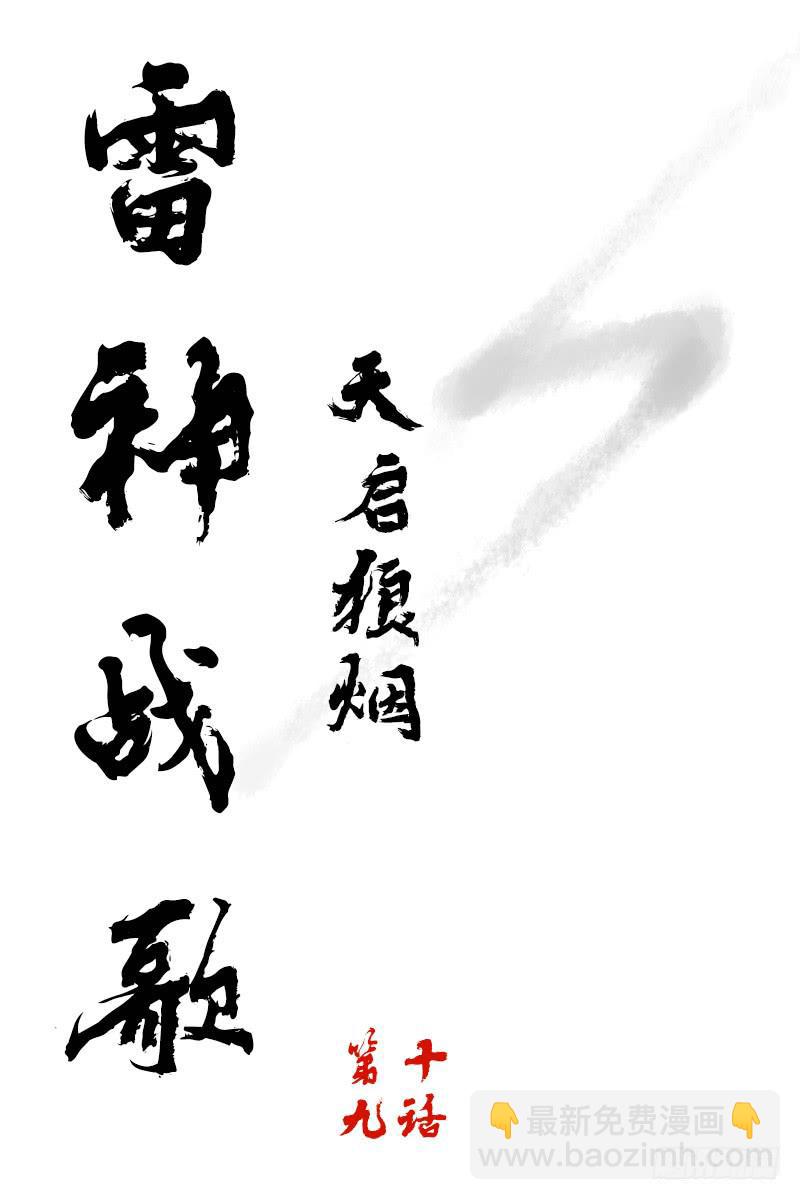 雷神战歌
天启狼烟
第十
九话
👇最新免费漫画👇
www.baozimh.com